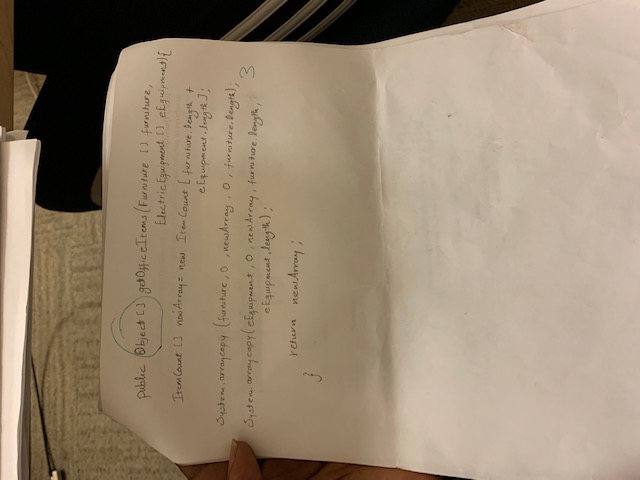 public Object [] getOfficeItems (Furniture [] furniture,
ElectricEquipment [] eEquipment) {
ItemCount [] newArray = new ItemCount [ furniture.length +
eEquipment.length ];
System.arraycopy (furniture, 0, newArray, 0, furniture.length);
System.arraycopy (eEquipment, 0, newArray, furniture.length,
eEquipment.length);
3
return newArray;
}